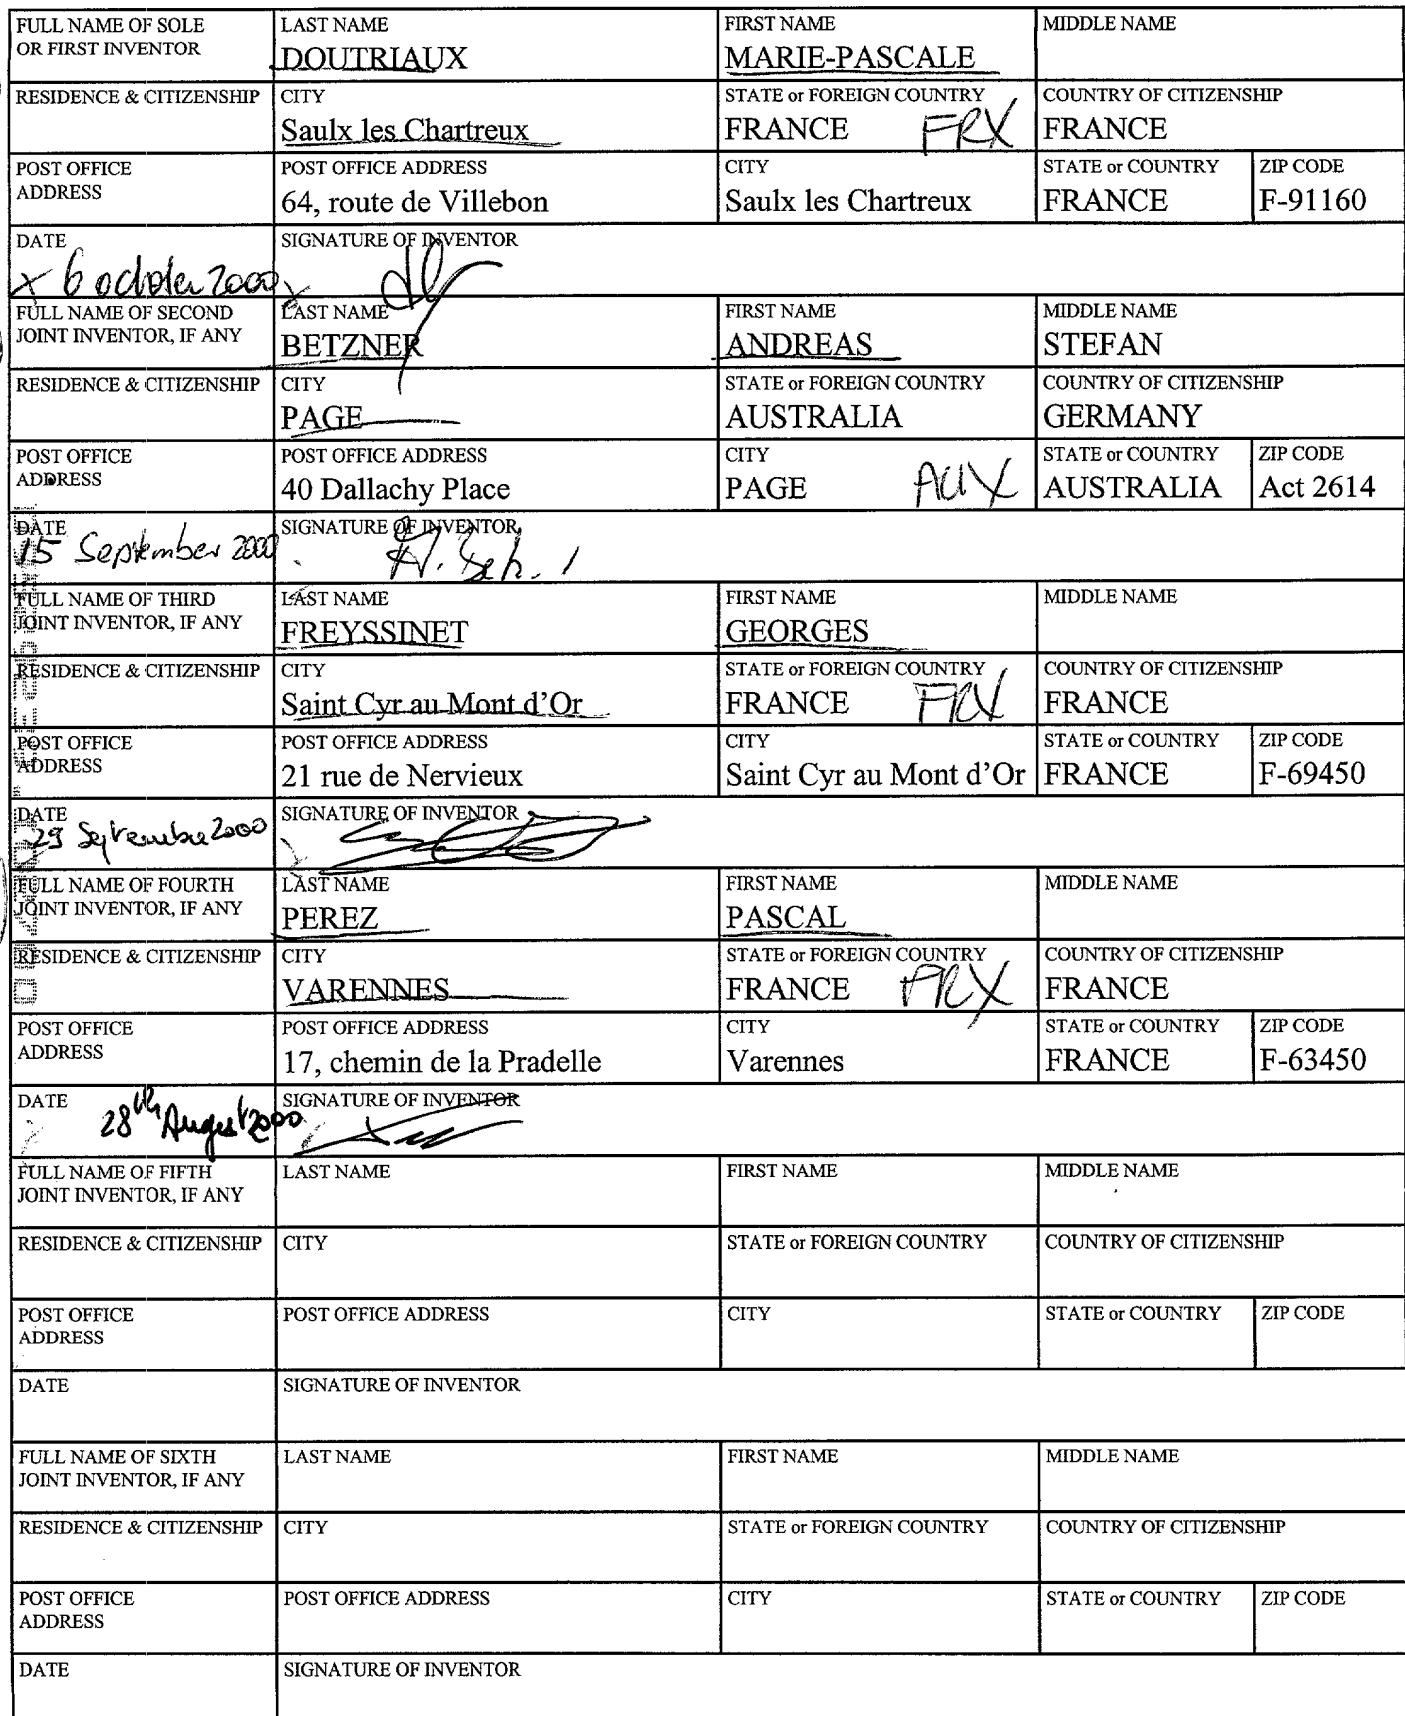 FULL NAME OF SOLE OR FIRST INVENTOR LAST NAME DOUTRIAUX FIRST NAME MARIE-PASCALE MIDDLE NAME
RESIDENCE & CITIZENSHIP CITY Saulx les Chartreux STATE or FOREIGN COUNTRY FRANCE FRX COUNTRY OF CITIZENSHIP FRANCE
POST OFFICE ADDRESS POST OFFICE ADDRESS 64, route de Villebon CITY Saulx les Chartreux STATE or COUNTRY FRANCE ZIP CODE F-91160
DATE x 6 october 2000 SIGNATURE OF INVENTOR
FULL NAME OF SECOND JOINT INVENTOR, IF ANY LAST NAME BETZNER FIRST NAME ANDREAS MIDDLE NAME STEFAN
RESIDENCE & CITIZENSHIP CITY PAGE STATE or FOREIGN COUNTRY AUSTRALIA COUNTRY OF CITIZENSHIP GERMANY
POST OFFICE ADDRESS POST OFFICE ADDRESS 40 Dallachy Place CITY PAGE AUX STATE or COUNTRY AUSTRALIA ZIP CODE Act 2614
DATE 15 September 2000 SIGNATURE OF INVENTOR
FULL NAME OF THIRD JOINT INVENTOR, IF ANY LAST NAME FREYSSINET FIRST NAME GEORGES MIDDLE NAME
RESIDENCE & CITIZENSHIP CITY Saint Cyr au Mont d'Or STATE or FOREIGN COUNTRY FRANCE FRX COUNTRY OF CITIZENSHIP FRANCE
POST OFFICE ADDRESS POST OFFICE ADDRESS 21 rue de Nervieux CITY Saint Cyr au Mont d'Or STATE or COUNTRY FRANCE ZIP CODE F-69450
DATE 29 Septembre 2000 SIGNATURE OF INVENTOR
FULL NAME OF FOURTH JOINT INVENTOR, IF ANY LAST NAME PEREZ FIRST NAME PASCAL MIDDLE NAME
RESIDENCE & CITIZENSHIP CITY VARENNES STATE or FOREIGN COUNTRY FRANCE FRX COUNTRY OF CITIZENSHIP FRANCE
POST OFFICE ADDRESS POST OFFICE ADDRESS 17, chemin de la Pradelle CITY Varennes STATE or COUNTRY FRANCE ZIP CODE F-63450
DATE 28th August 2000 SIGNATURE OF INVENTOR
FULL NAME OF FIFTH JOINT INVENTOR, IF ANY LAST NAME FIRST NAME MIDDLE NAME
RESIDENCE & CITIZENSHIP CITY STATE or FOREIGN COUNTRY COUNTRY OF CITIZENSHIP
POST OFFICE ADDRESS POST OFFICE ADDRESS CITY STATE or COUNTRY ZIP CODE
DATE SIGNATURE OF INVENTOR
FULL NAME OF SIXTH JOINT INVENTOR, IF ANY LAST NAME FIRST NAME MIDDLE NAME
RESIDENCE & CITIZENSHIP CITY STATE or FOREIGN COUNTRY COUNTRY OF CITIZENSHIP
POST OFFICE ADDRESS POST OFFICE ADDRESS CITY STATE or COUNTRY ZIP CODE
DATE SIGNATURE OF INVENTOR